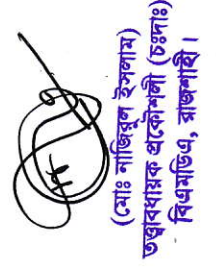 (মোঃ নাজিরুল ইসলাম)
তত্ত্বাবধায়ক প্রকৌশলী (চঃদাঃ)
বিএমডিএ, রাজশাহী।